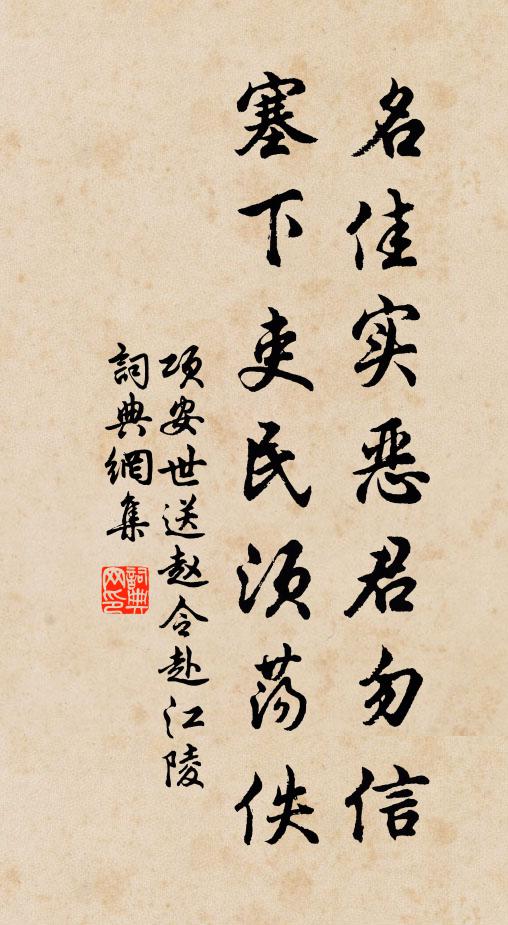 名佳实恶君勿信
塞下吏民须荡佚
项安世送赵令赴江陵
詞典網集
詞典
网印